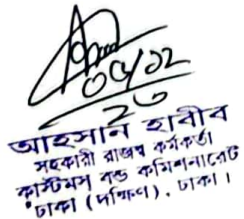 ০৫/১২
২৩
আহসান হাবীব
সহকারী রাজস্ব কর্মকর্তা
কাস্টমস বন্ড কমিশনারেট
ঢাকা (দক্ষিণ), ঢাকা।